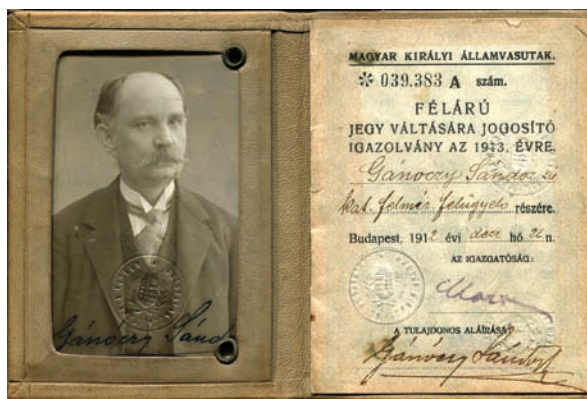 Gánóczy Sándor
MAGYAR KIRÁLYI ÁLLAMVASUTAK.
* 039.383 A szám.
FÉLÁRÚ
JEGY VÁLTÁSÁRA JOGOSÍTÓ
IGAZOLVÁNY AZ 1913. ÉVRE.
Gánóczy Sándor
kat. felmér. felügyelő részére.
Budapest, 1912 évi decz hó n.
AZ IGAZGATÓSÁG:
A TULAJDONOS ALÁÍRÁSA:
Gánóczy Sándor